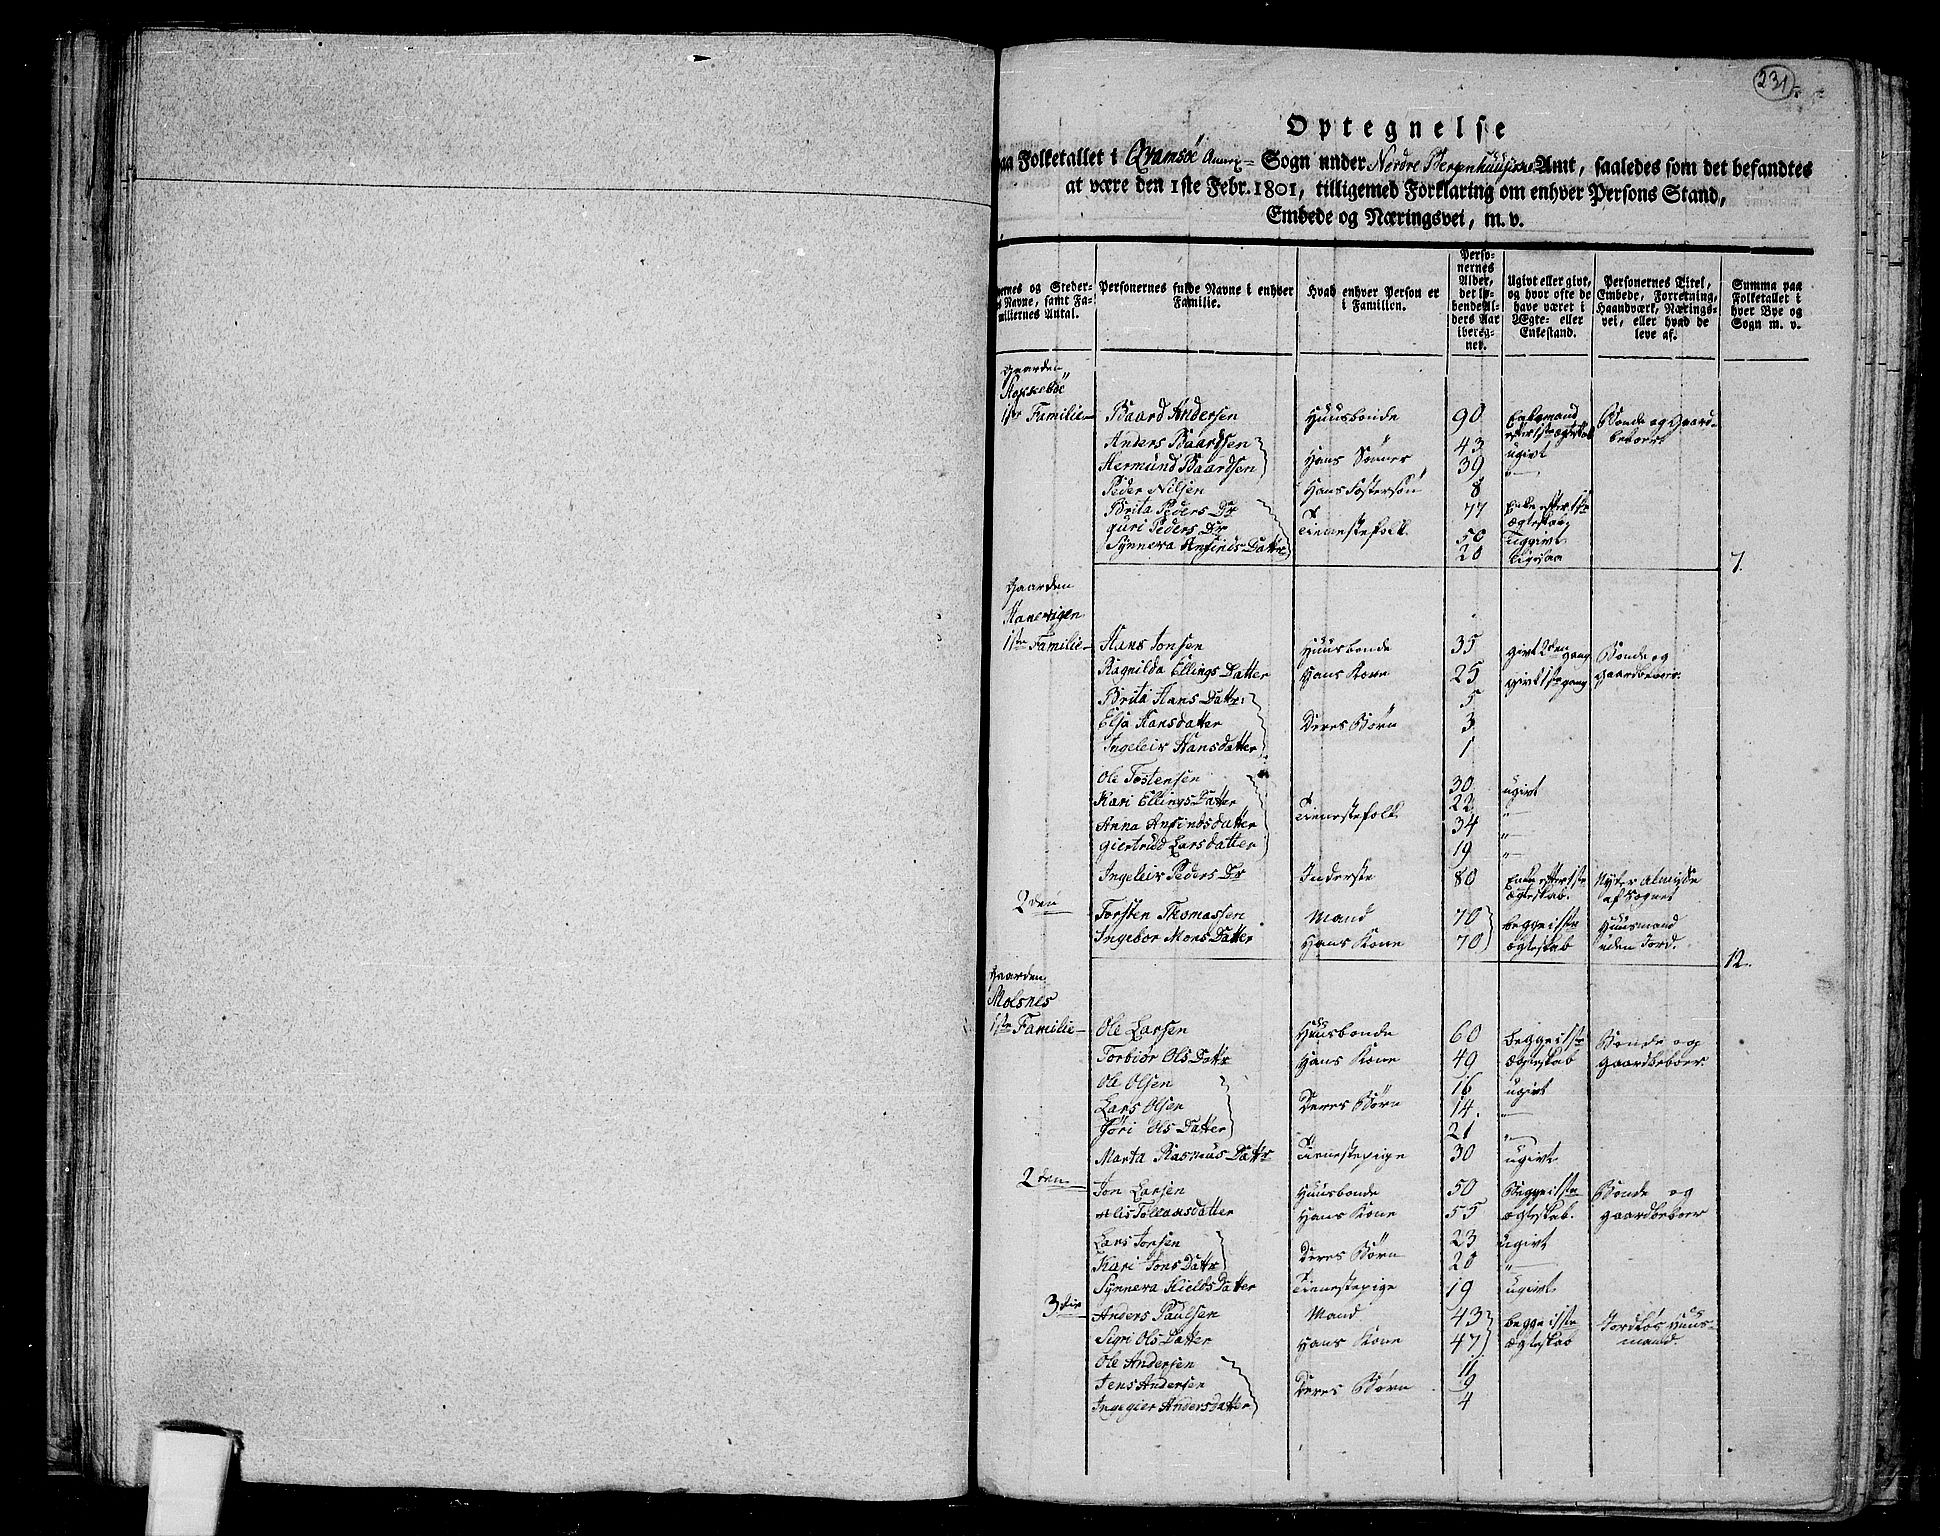 231
Optegnelse
paa Folketallet i Qvamsöe Annex Sogn under Nordre Bergenhuuse Amt, saaledes som det befandtes
at være den 1ste Febr. 1801, tilligemed Forklaring om enhver Persons Stand,
Embede og Næringsvei, m. v.
ernes og Steder-
s Navne, samt Fa-
miliernes Antal.
Personernes fulde Navne i enhver
Familie.
Hvad enhver Person er
i Familien.
Perso-
nernes
Alder,
det lø-
bende Al-
ders Aar
ibereg-
net.
Ugivt eller givt,
og hvor ofte de
have været i
Ægte- eller
Enkestand.
Personernes Titel,
Embede, Forretning,
Haandværk, Nærings-
vei, eller hvad de
leve af.
Summa paa
Folketallet i
hver Bye og
Sogn m. v.
Gaarden
1ste Familie Baard Andersen Huusbonde 90 Enkemand efter 1ste ægteskab Bonde og Gaard-beboer
Anders Baardsen 43 ugivt
Hermund Baardsen Hans Sönner 39 "
Peder Nilsen Hans Fostersön 8
Brita Peders Dr 77 Enke efter 1ste Ægteskab
Guri Peders Dr Tienestefolk 50 Uggivt
Synneva Ansinds Dattr 20 Ligesaa
7.
Gaarden
Hanevigen
1ste Familie Hans Jonsen Huusbonde 35 givt 2den gang Bonde og
Ragnilda Ellings Datter Hans Kone 25 givt 1ste gang gaardbeboer
Brita Hans Dattr: 5
Elsa Hansdatter Deres Börn 3
Ingeleiv Hansdatter 1
Ole Tostensen 30 ugivt
Kari Ellings Datter Tienestefolk 22 "
Anna Ansindsdatter 34 "
Giertrud Larsdatter 19 "
Ingeleiv Peders Dr Inderste 80 Enke efter 1ste Ægteskab. Nyder Almisse af Sognet
2den Torsten Thomassen Mand 70 begge i 1ste Huusmand
Ingebor Mons Datter Hans Kone 70 Ægteskab uden Jord.
12.
Gaarden
Molsnes
1ste Familie Ole Larsen Huusbonde 60 begge i 1ste Bonde og
Torbiör Ols Dattr Hans Kone 49 Ægteskab gaardbeboer
Ole Olsen 16 ugivt
Lars Olsen Deres Börn 14. "
Jöri Ols Datter 21 "
Marta Rasmus Dattr Tienestepige 30 ugivt
2den Jon Larsen Huusbonde 50 Begge i 1ste Bonde og
Hans Kone 55 Ægteskab. gaardbeboer
Lars Jonsen 23 Ugivt
Kari Jons Dattr Deres Börn 20 "
Synneva Kields Datter Tienestepige 19 ugivt
3die Anders Paulsen Mand 43 begge i 1ste Jordlös Huus-
Sigri Ols Datter Hans Kone 47 Ægteskab mand.
Ole Andersen 11
Jens Andersen Deres Börn 9
Ingegier Andersdatter 4